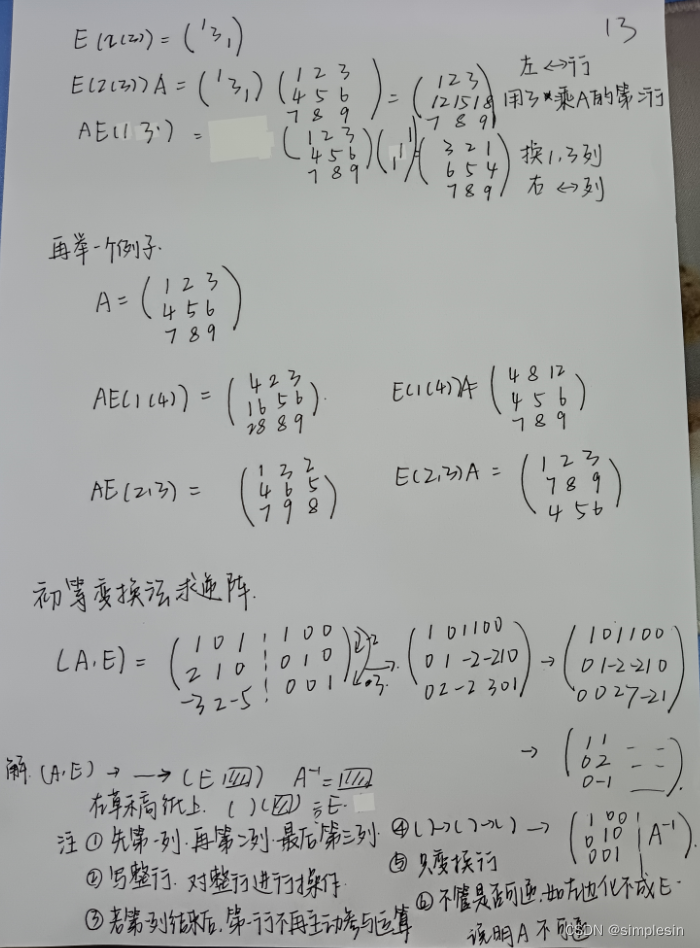 13
E(2(3)) = (1 3 1)
E(2(3))A = (1 3 1) (1 2 3 / 4 5 6 / 7 8 9) = (1 2 3 / 12 15 18 / 7 8 9) 左↔行 用3*乘A的第二行
AE(1 3) = (1 2 3 / 4 5 6 / 7 8 9) (1 / 1 / 1) = (3 2 1 / 6 5 4 / 7 8 9) 换1,3列 右↔列
再举一个例子.
A = (1 2 3 / 4 5 6 / 7 8 9)
AE(1(4)) = (4 2 3 / 16 5 6 / 28 8 9). E(1(4))A = (4 8 12 / 4 5 6 / 7 8 9)
AE(2,3) = (1 3 2 / 4 6 5 / 7 9 8) E(2,3)A = (1 2 3 / 7 8 9 / 4 5 6)
初等变换法求逆阵.
(A,E) = (1 0 1 ⋮ 1 0 0 / 2 1 0 ⋮ 0 1 0 / -3 2 -5 ⋮ 0 0 1) → (1 0 1 1 0 0 / 0 1 -2 -2 1 0 / 0 2 -2 3 0 1) → (1 0 1 1 0 0 / 0 1 -2 -2 1 0 / 0 0 2 7 -2 1)
→ (1 1 / 0 2 / 0 -1)
解 (A,E) → → (E ) A⁻¹ =
在草稿纸上. ( )( ) E.
注 ① 先第一列.再第二列.最后第三列.
② 写整行.对整行进行操作.
③ 若第一列结束后,第一行不再主动参与运算
④ ( )→( )→( ) → (1 0 0 / 0 1 0 / 0 0 1 | A⁻¹).
⑤ 只变换行
⑥ 不管是否可逆,如左边化不成E.
说明A不可逆
CSDN @simplesin